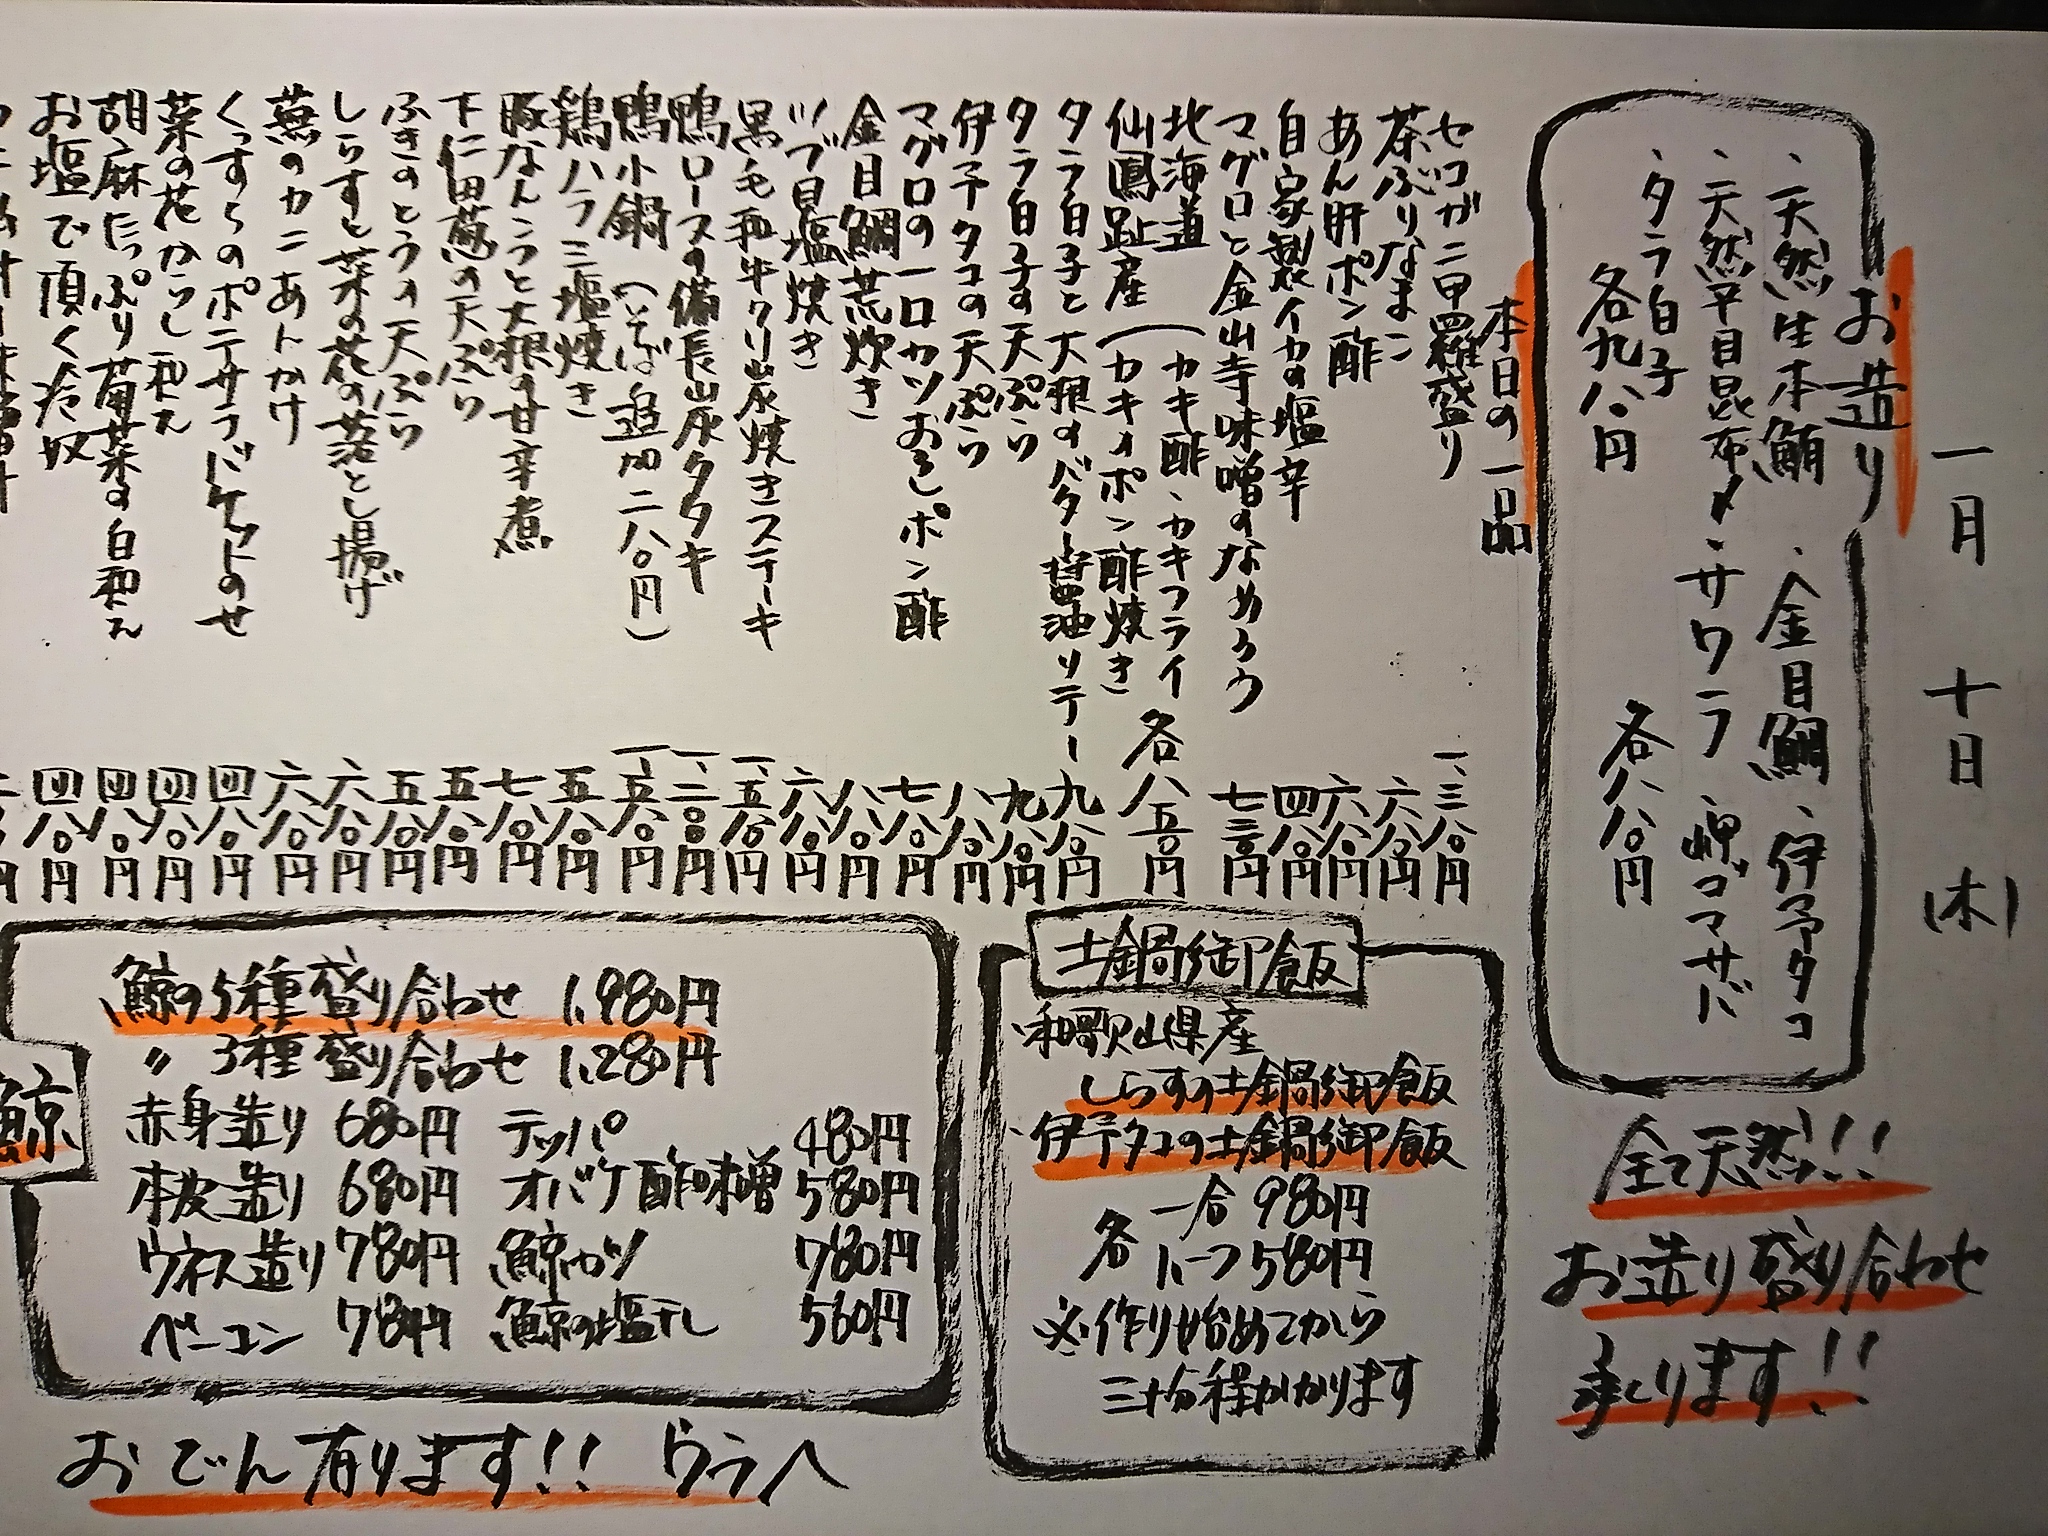 一月 十日 (木)
お造り
・天然生本鮪 ・金目鯛 ・伊予タコ
・天然平目昆布〆 ・サワラ ・岬ゴマサバ
・タラ白子
各九八〇円 各八八〇円
全て天然!!
お造り盛り合わせ
承ります!!
本日の一品
セコガニ甲羅盛り 一、三八〇円
茶ぶりなまこ 六八〇円
あん肝ポン酢 六八〇円
自家製イカの塩辛 四八〇円
マグロと金山寺味噌のなめろう 七三〇円
北海道 (カキ酢・カキフライ 各八五〇円
仙鳳趾産 (カキのポン酢焼き
タラ白子と大根のバター醤油ソテー 九八〇円
タラ白子の天ぷら 九八〇円
伊予タコの天ぷら 八八〇円
マグロの一口カツおろしポン酢 七八〇円
金目鯛荒炊き 八八〇円
ツブ貝塩焼き 六八〇円
黒毛和牛クリ炭焼きステーキ 一、五八〇円
鴨ロースの備長炭タタキ 一、二〇〇円
鴨小鍋 (そば追加二八〇円) 一、五八〇円
鶏ハラミ塩焼き 五八〇円
豚なんこつと大根の甘辛煮 七八〇円
下仁田葱の天ぷら 五八〇円
ふきのとうの天ぷら 五八〇円
しらすと菜の花の落とし揚げ 六八〇円
蕪のカニあんかけ 六八〇円
くっすらのポテサラバケットのせ 四八〇円
菜の花からし和え 四八〇円
胡麻たっぷり菊菜の白和え 四八〇円
お塩で頂く冷奴 四八〇円
土鍋御飯
・和歌山県産
しらすの土鍋御飯
・伊予タコの土鍋御飯
各 一合 980円
ハーフ 580円
※作り始めてから
三十分程かかります
鯨
鯨の5種盛り合わせ 1,980円
〃 3種盛り合わせ 1,280円
赤身造り 680円 テッパ 480円
本皮造り 680円 オバケ酢味噌 580円
ウネス造り 780円 鯨カツ 780円
ベーコン 780円 鯨の塩干し 560円
おでん有ります!! ウラへ